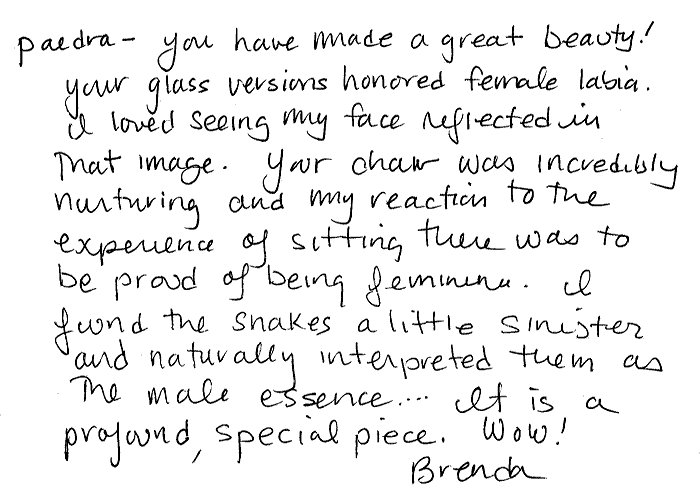 Paedra – you have made a great beauty!
your glass versions honored female labia.
I loved seeing my face reflected in
That image. Your chair was incredibly
nurturing and my reaction to the
experience of sitting there was to
be proud of being feminine. I
found the snakes a little sinister
and naturally interpreted them as
The male essence.... It is a
profound, special piece. Wow!
Brenda